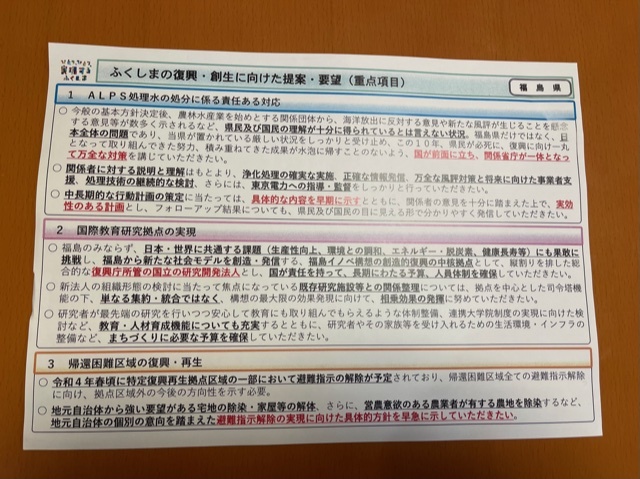 ひとつ、ひとつ、
実現する
ふくしま
ふくしまの復興・創生に向けた提案・要望（重点項目）
福島県
1 ALPS処理水の処分に係る責任ある対応
○ 今般の基本方針決定後、農林水産業を始めとする関係団体から、海洋放出に反対する意見や新たな風評が生じることを懸念
する意見等が数多く示されるなど、県民及び国民の理解が十分に得られているとは言えない状況。福島県だけではなく、日
本全体の問題であり、当県が置かれている厳しい状況をしっかりと受け止め、この１０年、県民が必死に、復興に向け一丸
となって取り組んできた努力、積み重ねてきた成果が水泡に帰すことのないよう、国が前面に立ち、関係省庁が一体となっ
て万全な対策を講じていただきたい。
○ 関係者に対する説明と理解はもとより、浄化処理の確実な実施、正確な情報発信、万全な風評対策と将来に向けた事業者支
援、処理技術の継続的な検討、さらには、東京電力への指導・監督をしっかりと行っていただきたい。
○ 中長期的な行動計画の策定に当たっては、具体的な内容を早期に示すとともに、関係者の意見を十分に踏まえた上で、実効
性のある計画とし、フォローアップ結果についても、県民及び国民の目に見える形で分かりやすく発信していただきたい。
2 国際教育研究拠点の実現
○ 福島のみならず、日本・世界に共通する課題（生産性向上、環境との調和、エネルギー・脱炭素、健康長寿等）にも果敢に
挑戦し、福島から新たな社会モデルを創造・発信する、福島イノベ構想の創造的復興の中核拠点として、縦割りを排した総
合的な復興庁所管の国立の研究開発法人とし、国が責任を持って、長期にわたる予算、人員体制を確保していただきたい。
○ 新法人の組織形態の検討に当たって焦点になっている既存研究施設等との関係整理については、拠点を中心とした司令塔機
能の下、単なる集約・統合ではなく、構想の最大限の効果発現に向けて、相乗効果の発揮に努めていただきたい。
○ 研究者が最先端の研究を行いつつ安心して教育にも取り組んでもらえるような体制整備、連携大学院制度の実現に向けた検
討など、教育・人材育成機能についても充実するとともに、研究者やその家族等を受け入れるための生活環境・インフラの
整備など、まちづくりに必要な予算を確保していただきたい。
3 帰還困難区域の復興・再生
○ 令和４年春頃に特定復興再生拠点区域の一部において避難指示の解除が予定されており、帰還困難区域全ての避難指示解除
に向け、拠点区域外の今後の方向性を示す必要。
○ 地元自治体から強い要望がある宅地の除染・家屋等の解体、さらに、営農意欲のある農業者が有する農地を除染するなど、
地元自治体の個別の意向を踏まえた避難指示解除の実現に向けた具体的方針を早急に示していただきたい。